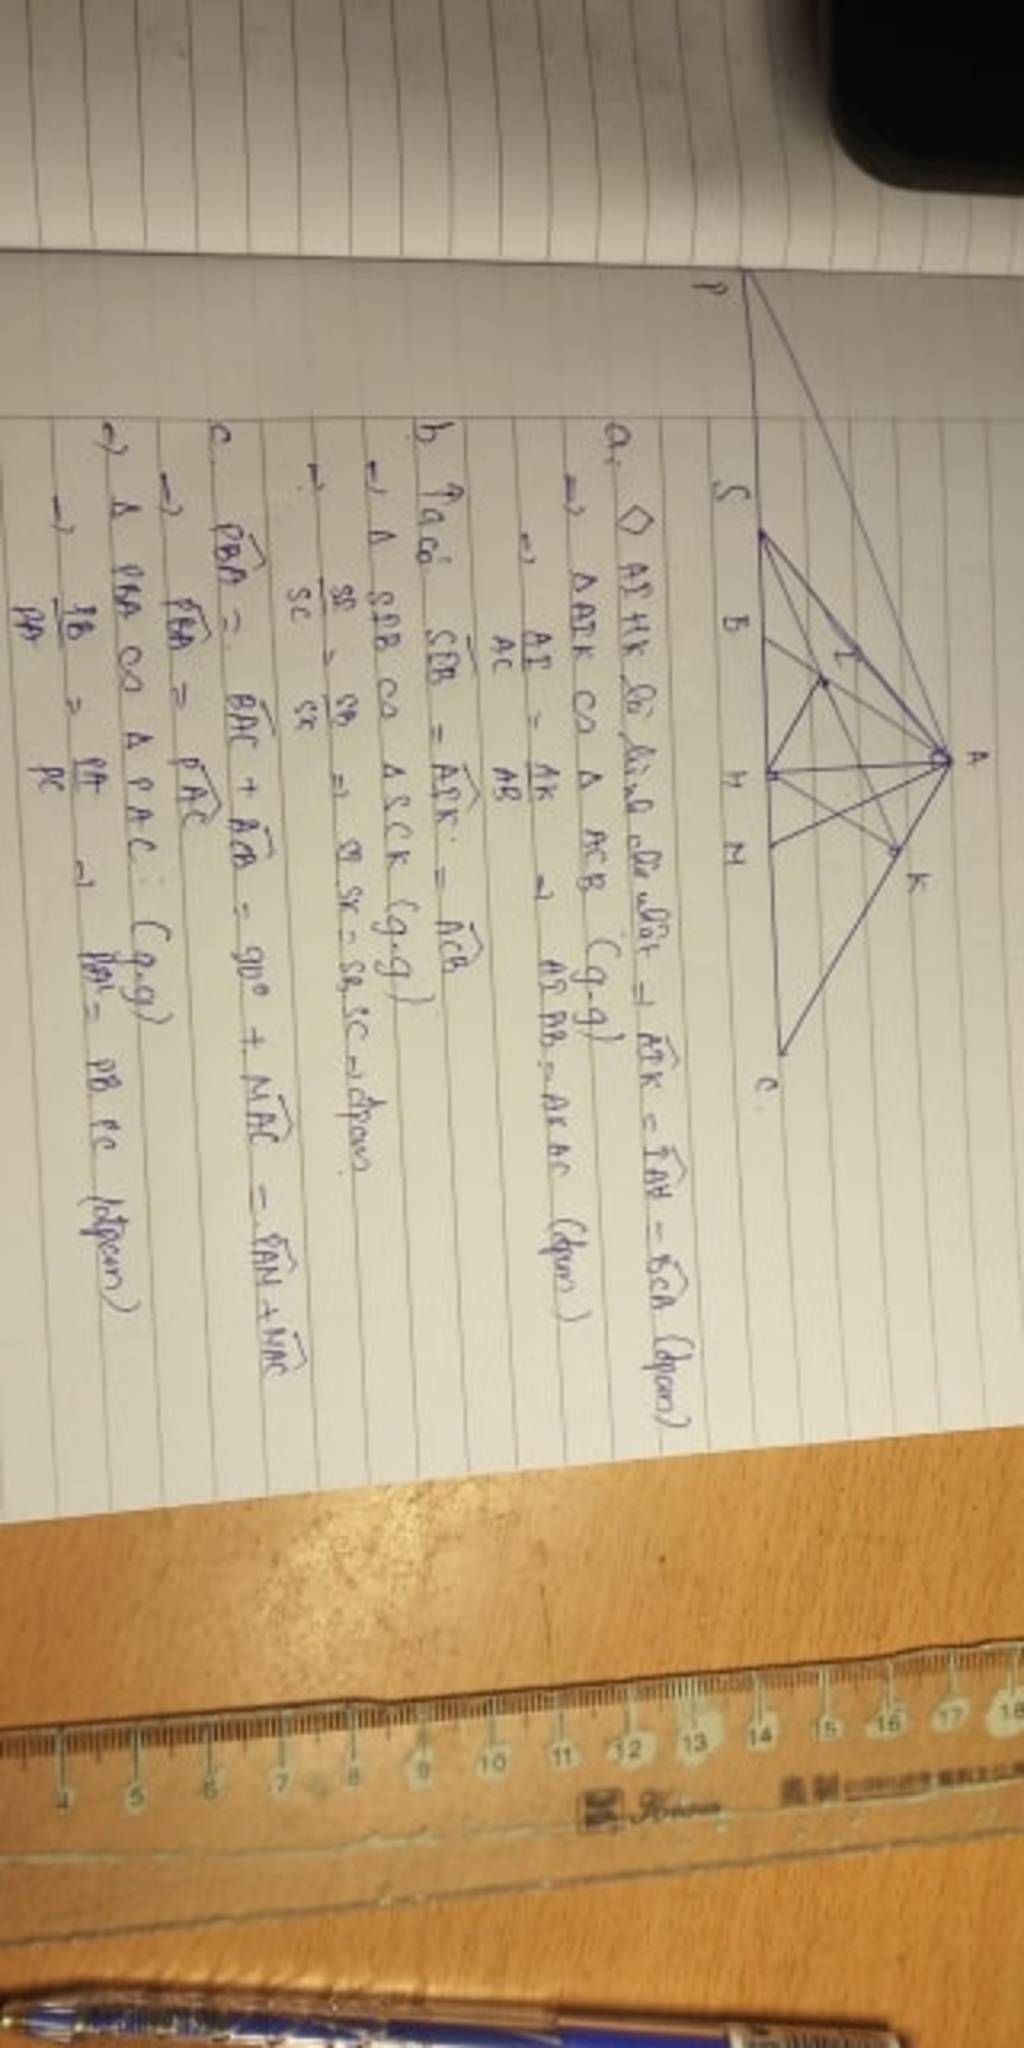 A
K
I
P
S
B
H
M
C
a, ◇ AIHK là hình chữ nhật ⇒ AIK = IAH = BCA (đpcm)
→ Δ AIK ∽ Δ ACB (g-g)
→ AI/AC = AK/AB → AI AB = AK AC (đpcm)
b, Ta có SIB = AIK = ACB
→ Δ SIB ∽ Δ SCK (g-g)
→ SI/SC = SB/SK ⇒ SI SK = SB SC → đpcm
c. PBA = BAC + ACB = 90° + MAC = PAM + MAC
→ PBA = PAC
→ Δ PBA ∽ Δ PAC: (g-g)
→ PB/PA = PA/PC → PA² = PB PC (đpcm)
4 5 6 7 8 9 10 11 12 13 14 15 16 17 18